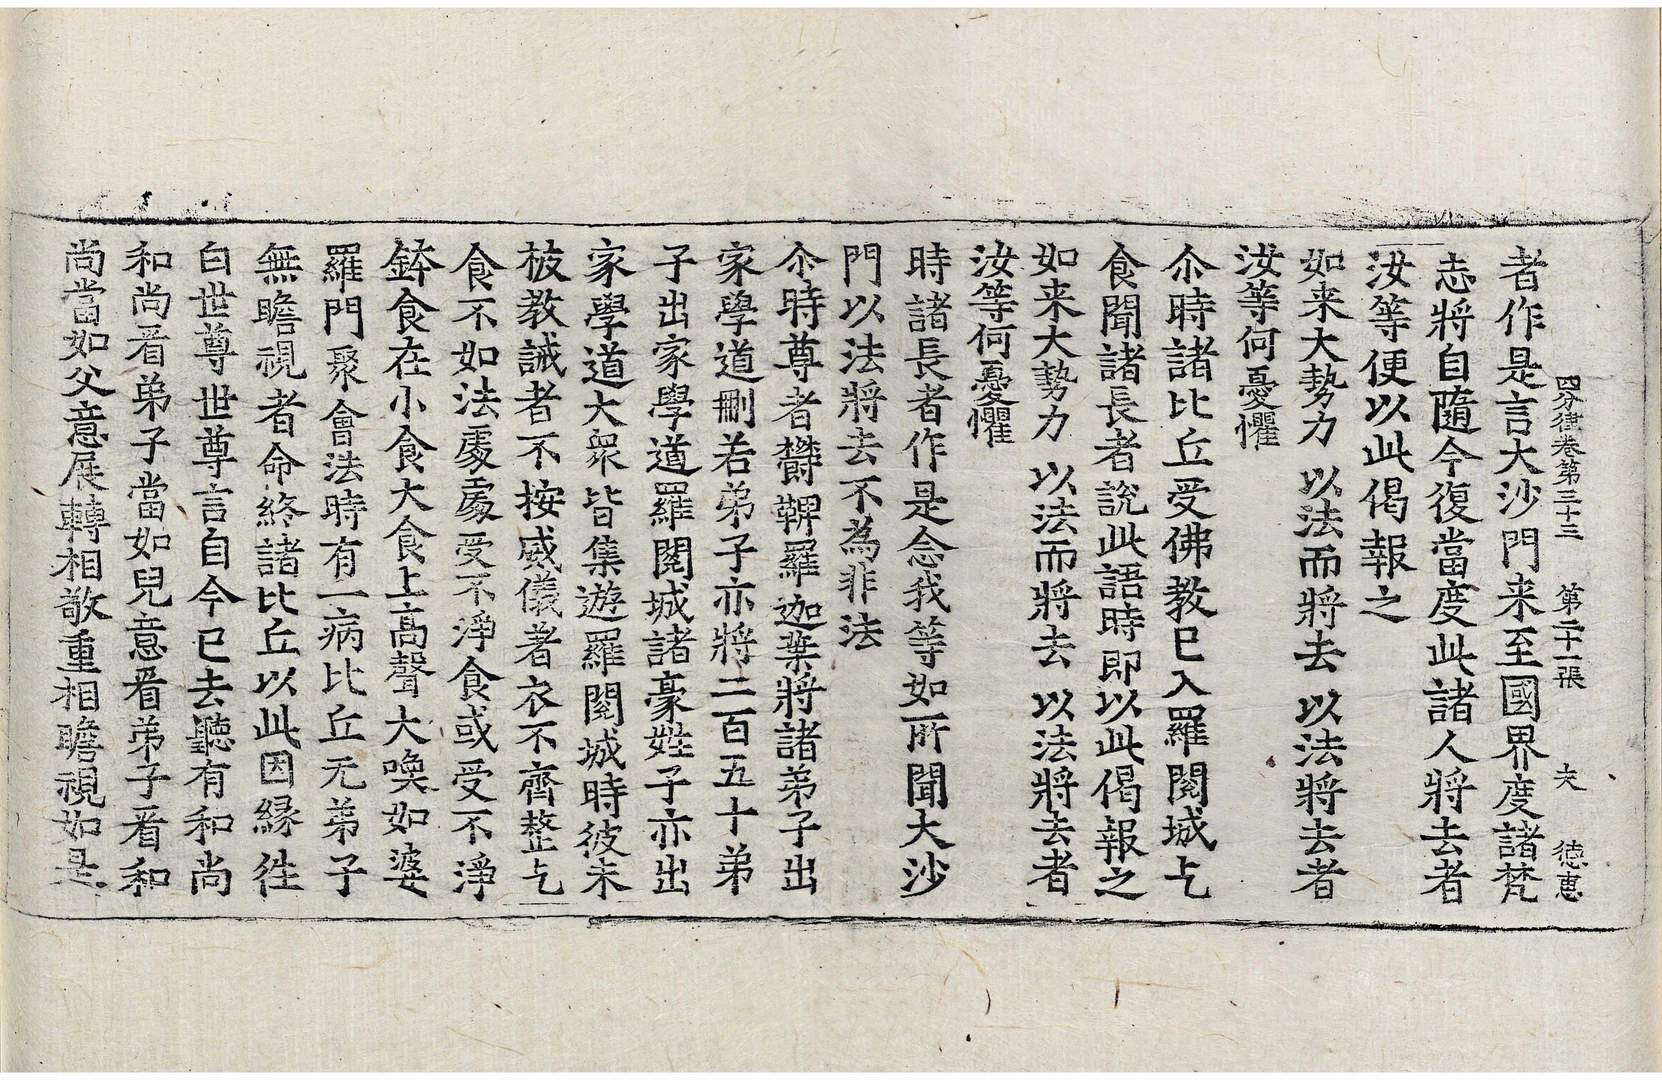 四分律卷第三十三 第二十一張 夫 徳恵
者作是言大沙門来至國界度諸梵
志將自隨今復當度此諸人將去者
汝等便以此偈報之
如来大勢力 以法而將去 以法將去者
汝等何憂懼
尒時諸比丘受佛教已入羅閱城乞
食聞諸長者說此語時即以此偈報之
如来大勢力 以法而將去 以法將去者
汝等何憂懼
時諸長者作是念我等如所聞大沙
門以法將去不為非法
尒時尊者欝鞞羅迦葉將諸弟子出
家學道刪若弟子亦將二百五十弟
子出家學道羅閱城諸豪姓子亦出
家學道大衆皆集遊羅閱城時彼未
被教誡者不按威儀著衣不齊整乞
食不如法處處受不淨食或受不淨
鉢食在小食大食上高聲大喚如婆
羅門聚會法時有一病比丘无弟子
無瞻視者命終諸比丘以此因縁徃
白世尊世尊言自今已去聽有和尚
和尚看弟子當如兒意看弟子看和
尚當如父意展轉相敬重相瞻視如是